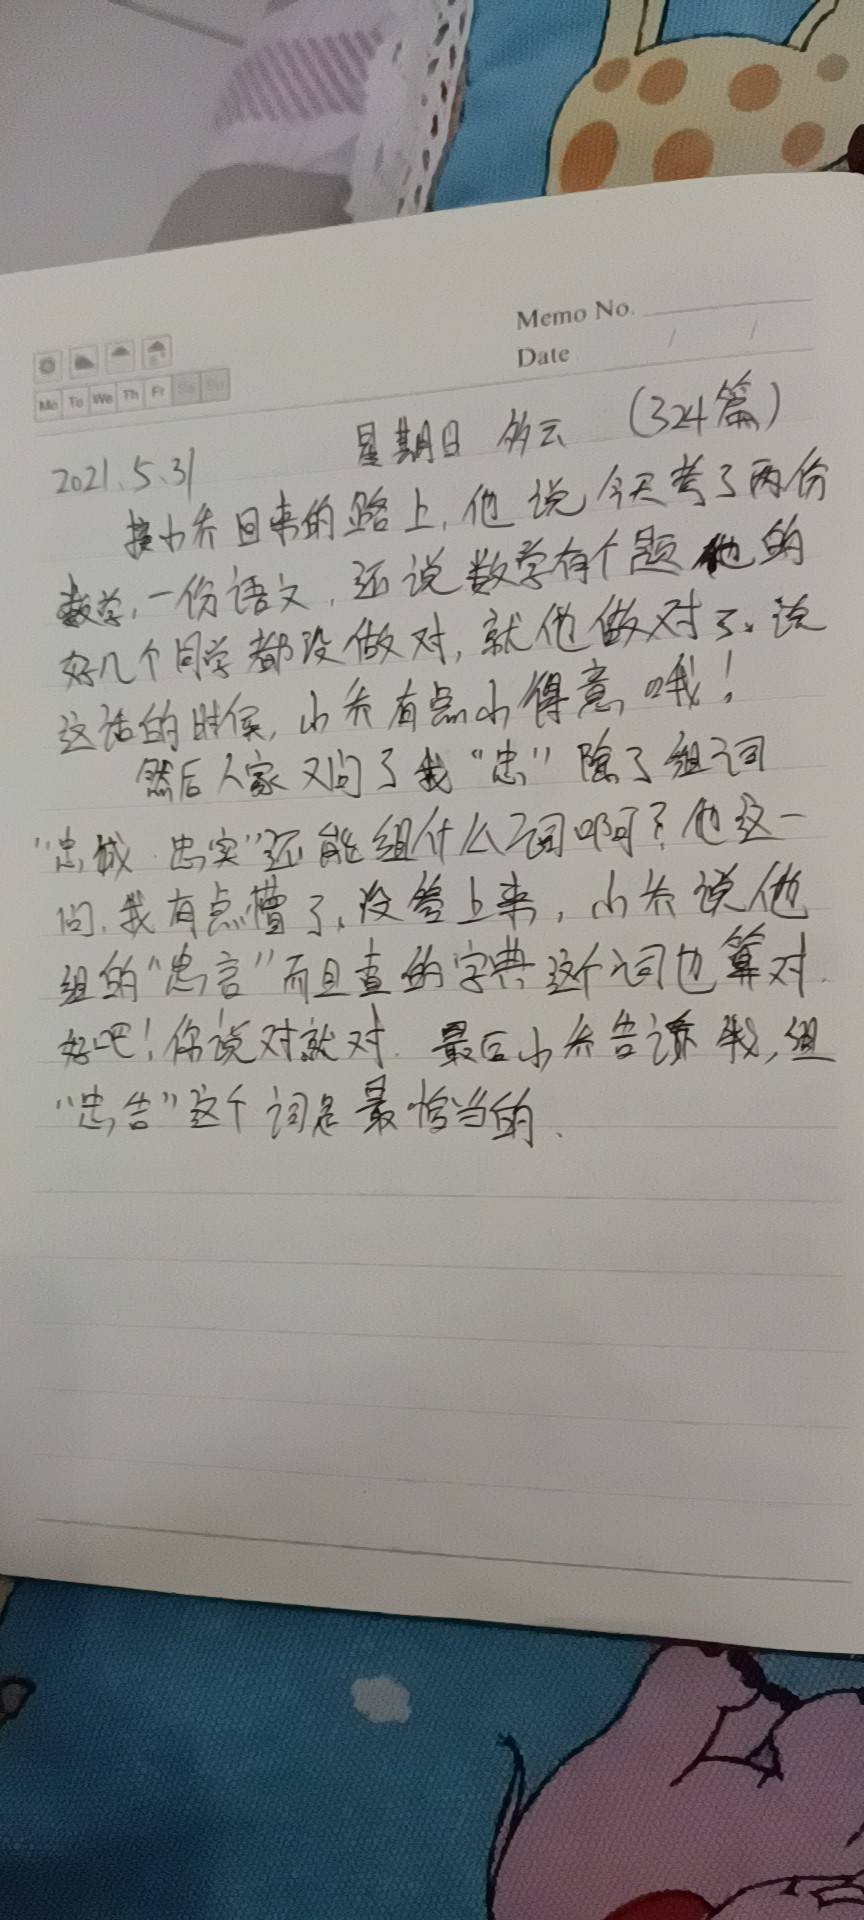 Memo No.
Date / /
Mo Tu We Th Fr Sa Su
2021.5.31 星期日 多云 (324篇)
接小乔回来的路上,他说今天考了两份
数学,一份语文,还说数学有个题他的
好几个同学都没做对,就他做对了。说
这话的时候,小乔有点小得意哦!
然后人家又问了我“忠”除了组词
“忠诚.忠实”还能组什么词啊?他这一
问.我有点懵了,没答上来,小乔说他
组的“忠言”而且查的字典这个词也算对.
好吧!你说对就对.最后小乔告诉我,组
“忠告”这个词是最恰当的.